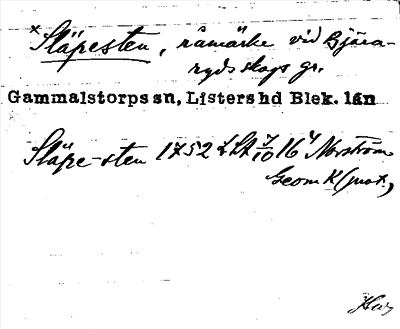 *Släpesten, råmärke vid Bjära-
ryds skogs gr.
Gammalstorps sn, Listers hd Blek. län
Släpe-sten 1752 7/10 16 Norström
Geom K (prot.)